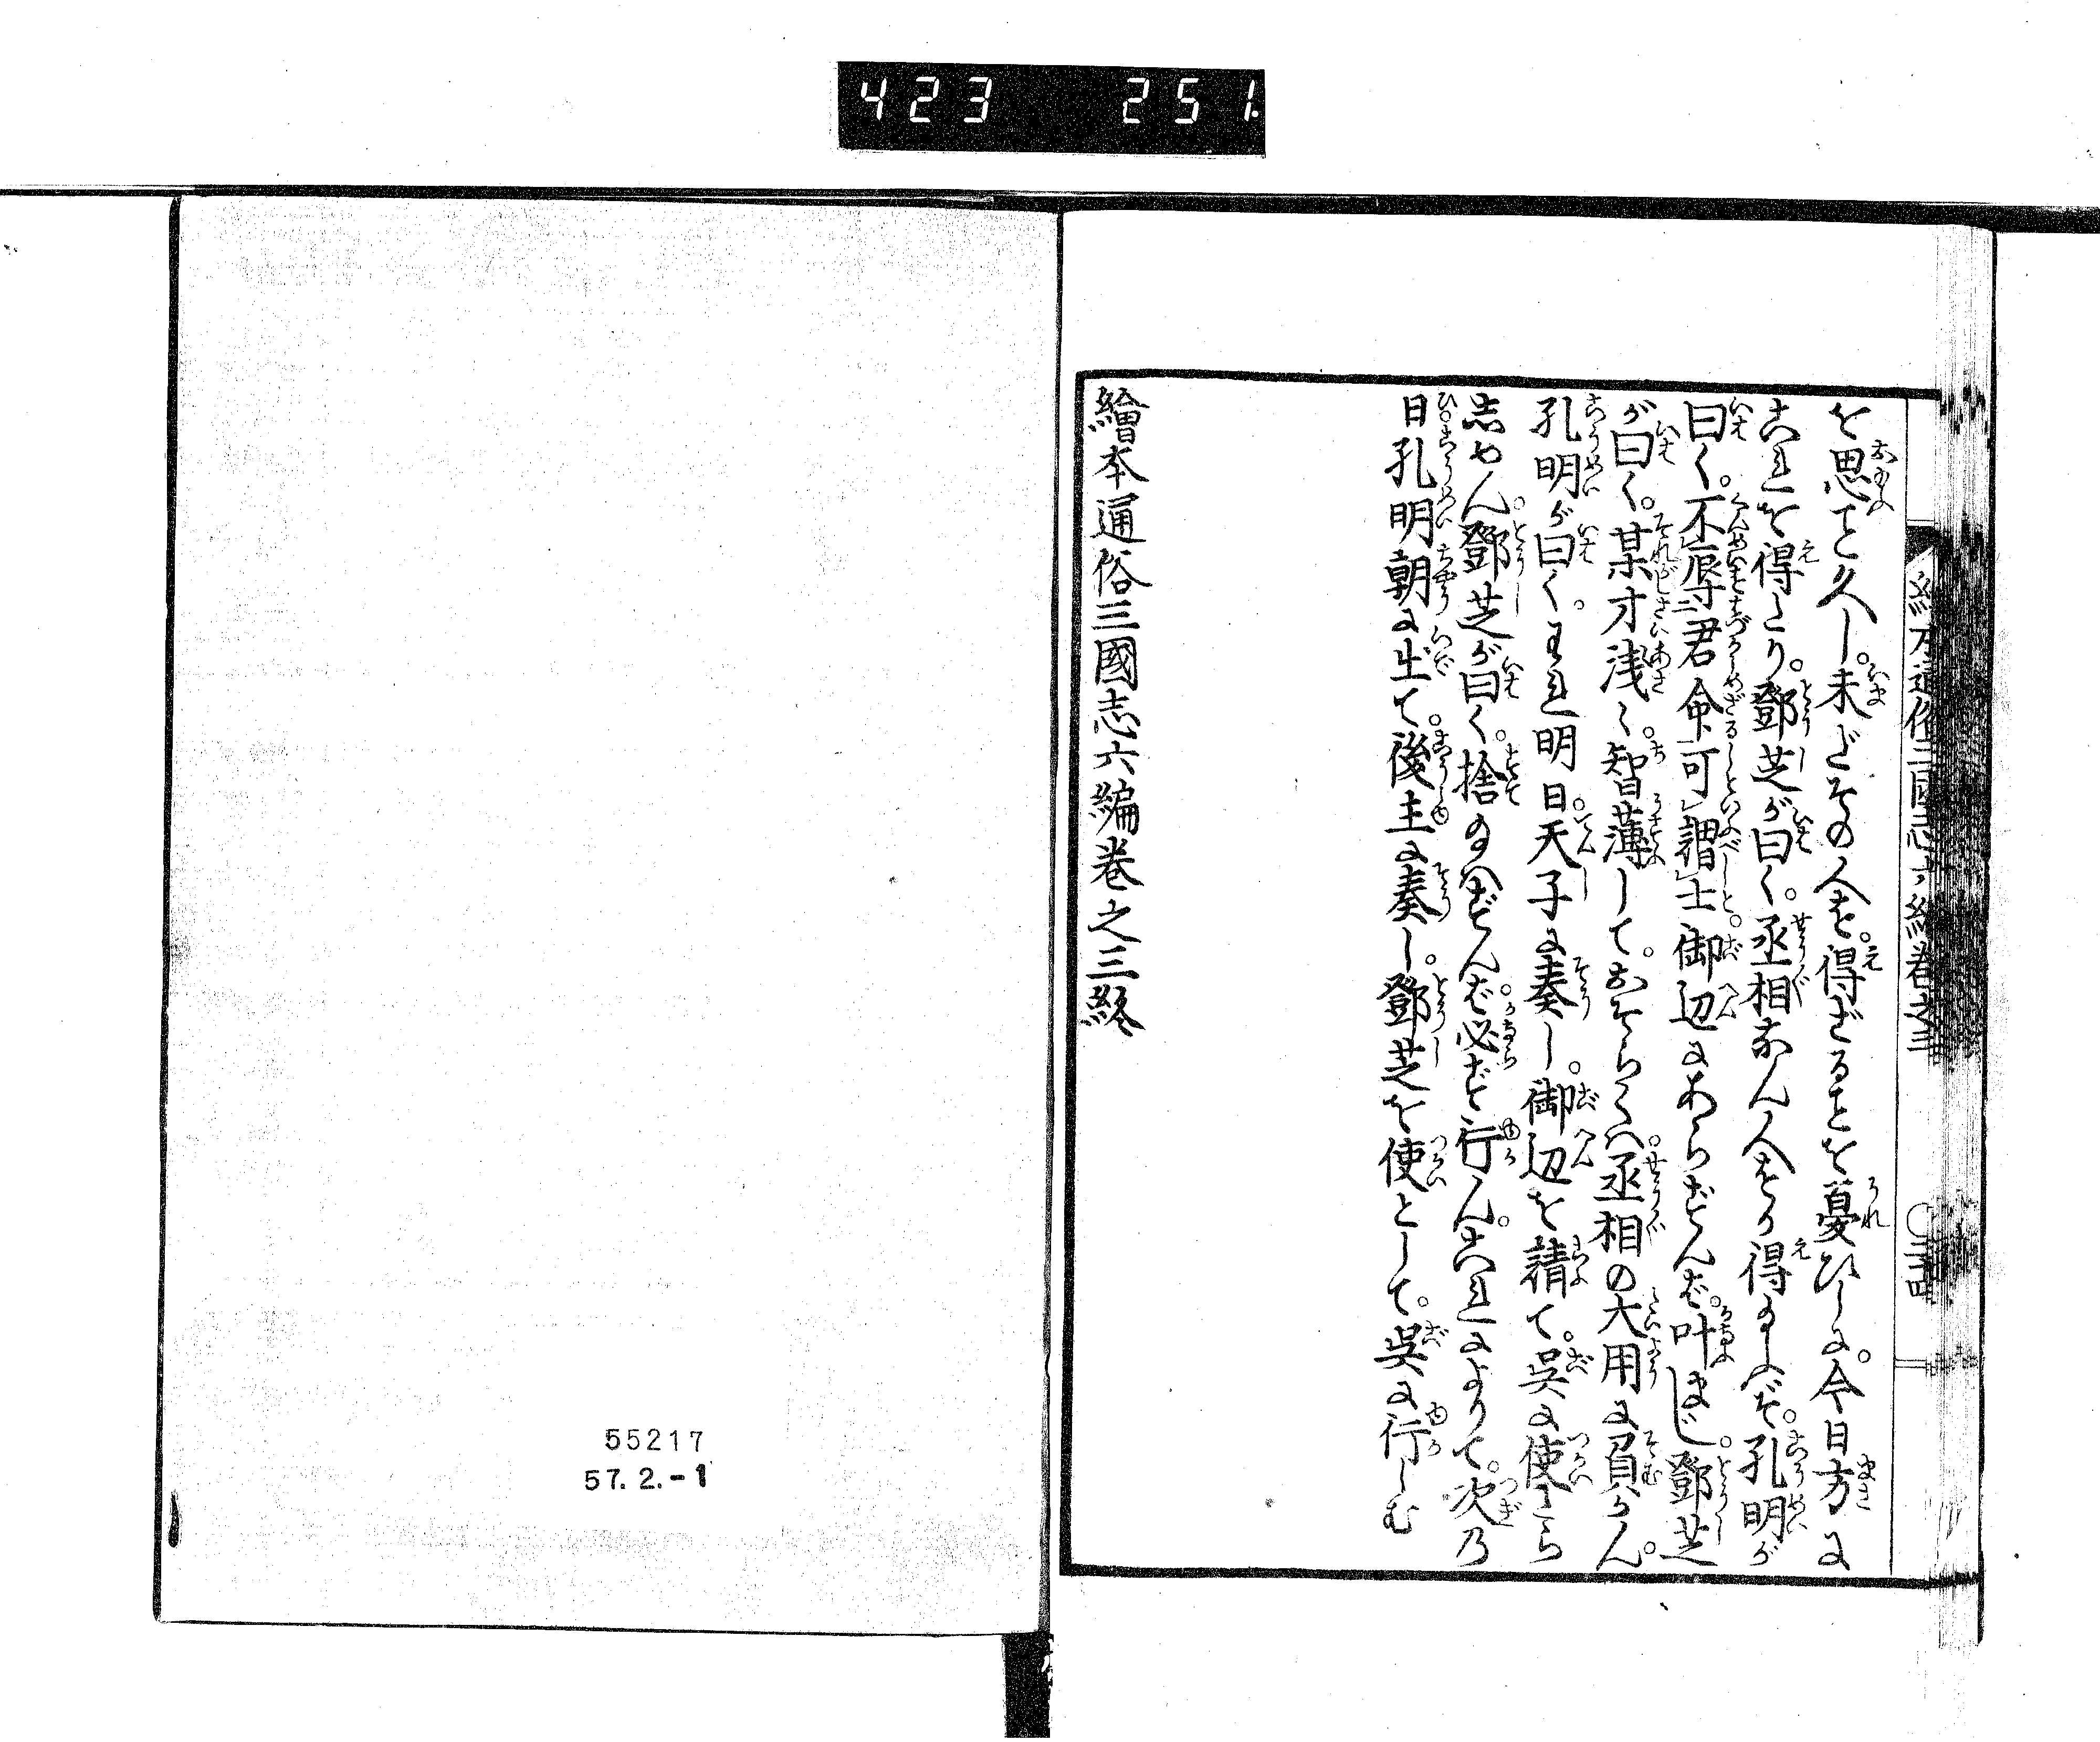 423 251
を思こと久し。未だその人を。得ざることを憂ひしに。今日方に
これを得たり。鄧芝が曰く。丞相なん人をか得玉へぞ。孔明が
曰く。不辱君命可謂士。御辺にあらずんば。叶まじ。鄧芝
が曰く。某才浅く。智薄して。おそらくハ。丞相の大用に負かん。
孔明が曰く。われ明日。天子に奏し。御辺を請て。呉に使たら
しめん。鄧芝が曰く。捨玉ハずんば。必ず行ん。これによりて。次乃
日孔明朝に出て。後主に奏し。鄧芝を使として。呉に行しむ
繪本通俗三國志六編巻之三終
繪本通俗三国志六編巻之三
〇三四
55217
57.2.-1